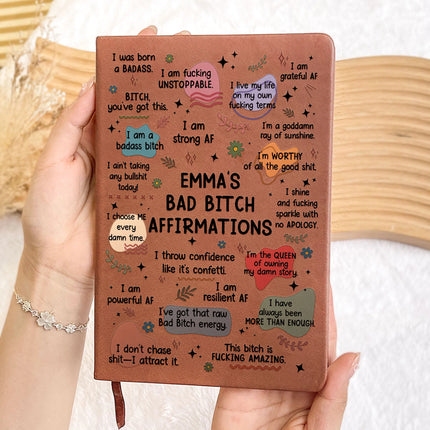 I was born
a BADASS.
I am fucking
UNSTOPPABLE.
I am
grateful AF
BITCH,
you've got this.
I live my life
on my own
fucking terms
I am a
badass bitch
I am
strong AF
I'm a goddamn
ray of sunshine.
I ain't taking
any bullshit
today!
I'm WORTHY
of all the good shit.
EMMA'S
BAD BITCH
AFFIRMATIONS
I shine
and fucking
sparkle with
no APOLOGY.
I choose ME
every
damn time.
I throw confidence
like it's confetti.
I'm the QUEEN
of owning
my damn story.
I am
powerful AF
I am
resilient AF
I have
always been
MORE THAN ENOUGH.
I've got that raw
Bad Bitch energy.
I don't chase
shit—I attract it.
This bitch is
FUCKING AMAZING.